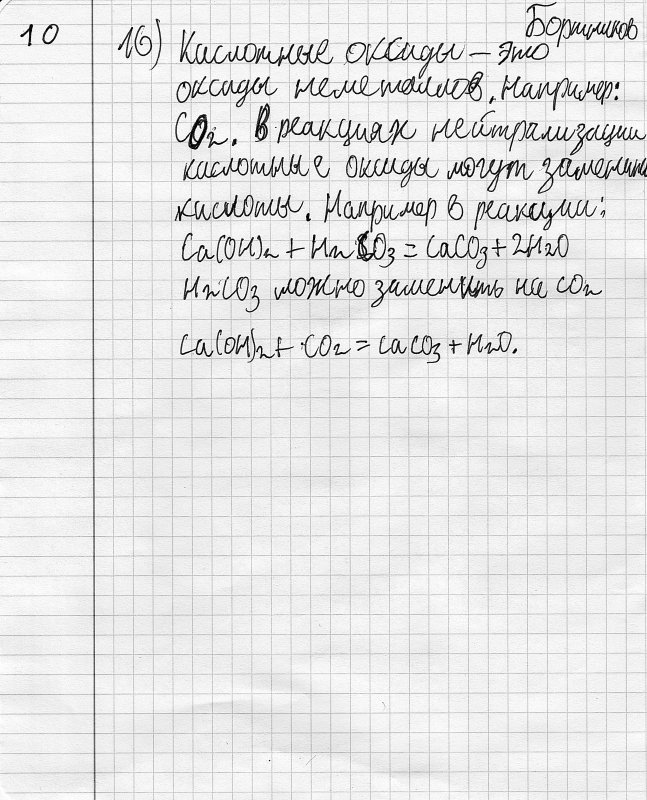 Бортников
10 16) Кислотные оксиды – это
оксиды неметаллов. Например:
CO2. В реакциях нейтрализации
кислотные оксиды могут заменить
кислоты. Например в реакции:
Ca(OH)2 + H2CO3 = CaCO3 + 2H2O
H2CO3 можно заменить на CO2
Ca(OH)2 + CO2 = CaCO3 + H2O.